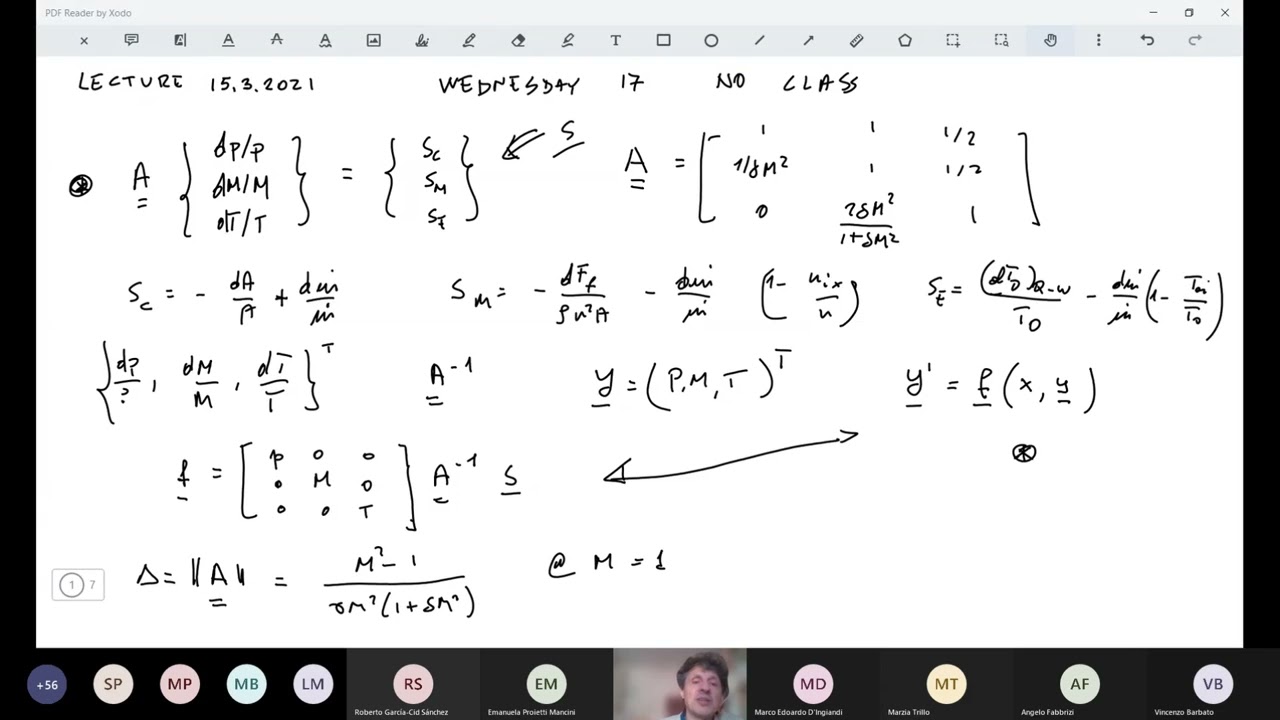 PDF Reader by Xodo
LECTURE 15.3.2021 WEDNESDAY 17 NO CLASS
⊛ A { dp/p dM/M dT/T } = { Sc SM St } S A = [ 1 1 1/2
1/γM² 1 1/2
0 2δM²/1+δM² 1 ]
Sc = - dA/A + dṁ/ṁ SM = - dFf/ρu²A - dṁ/ṁ (1 - uix/u) St = (dT0)Q-W/T0 - dṁ/ṁ (1 - T0i/T0)
{ dp/?, dM/M, dT/T }ᵀ A⁻¹ y = (P, M, T)ᵀ y' = f (x, y)
⊛
f = [ p 0 0
0 M 0
0 0 T ] A⁻¹ S
Δ = ||A|| = M² - 1/γM²(1+δM²) @ M = 1
1 7
+56 SP MP MB LM RS EM MD MT AF VB
Roberto García-Cid Sánchez Emanuela Proietti Mancini Marco Edoardo D'Ingiandi Marzia Trillo Angelo Fabbrizi Vincenzo Barbato